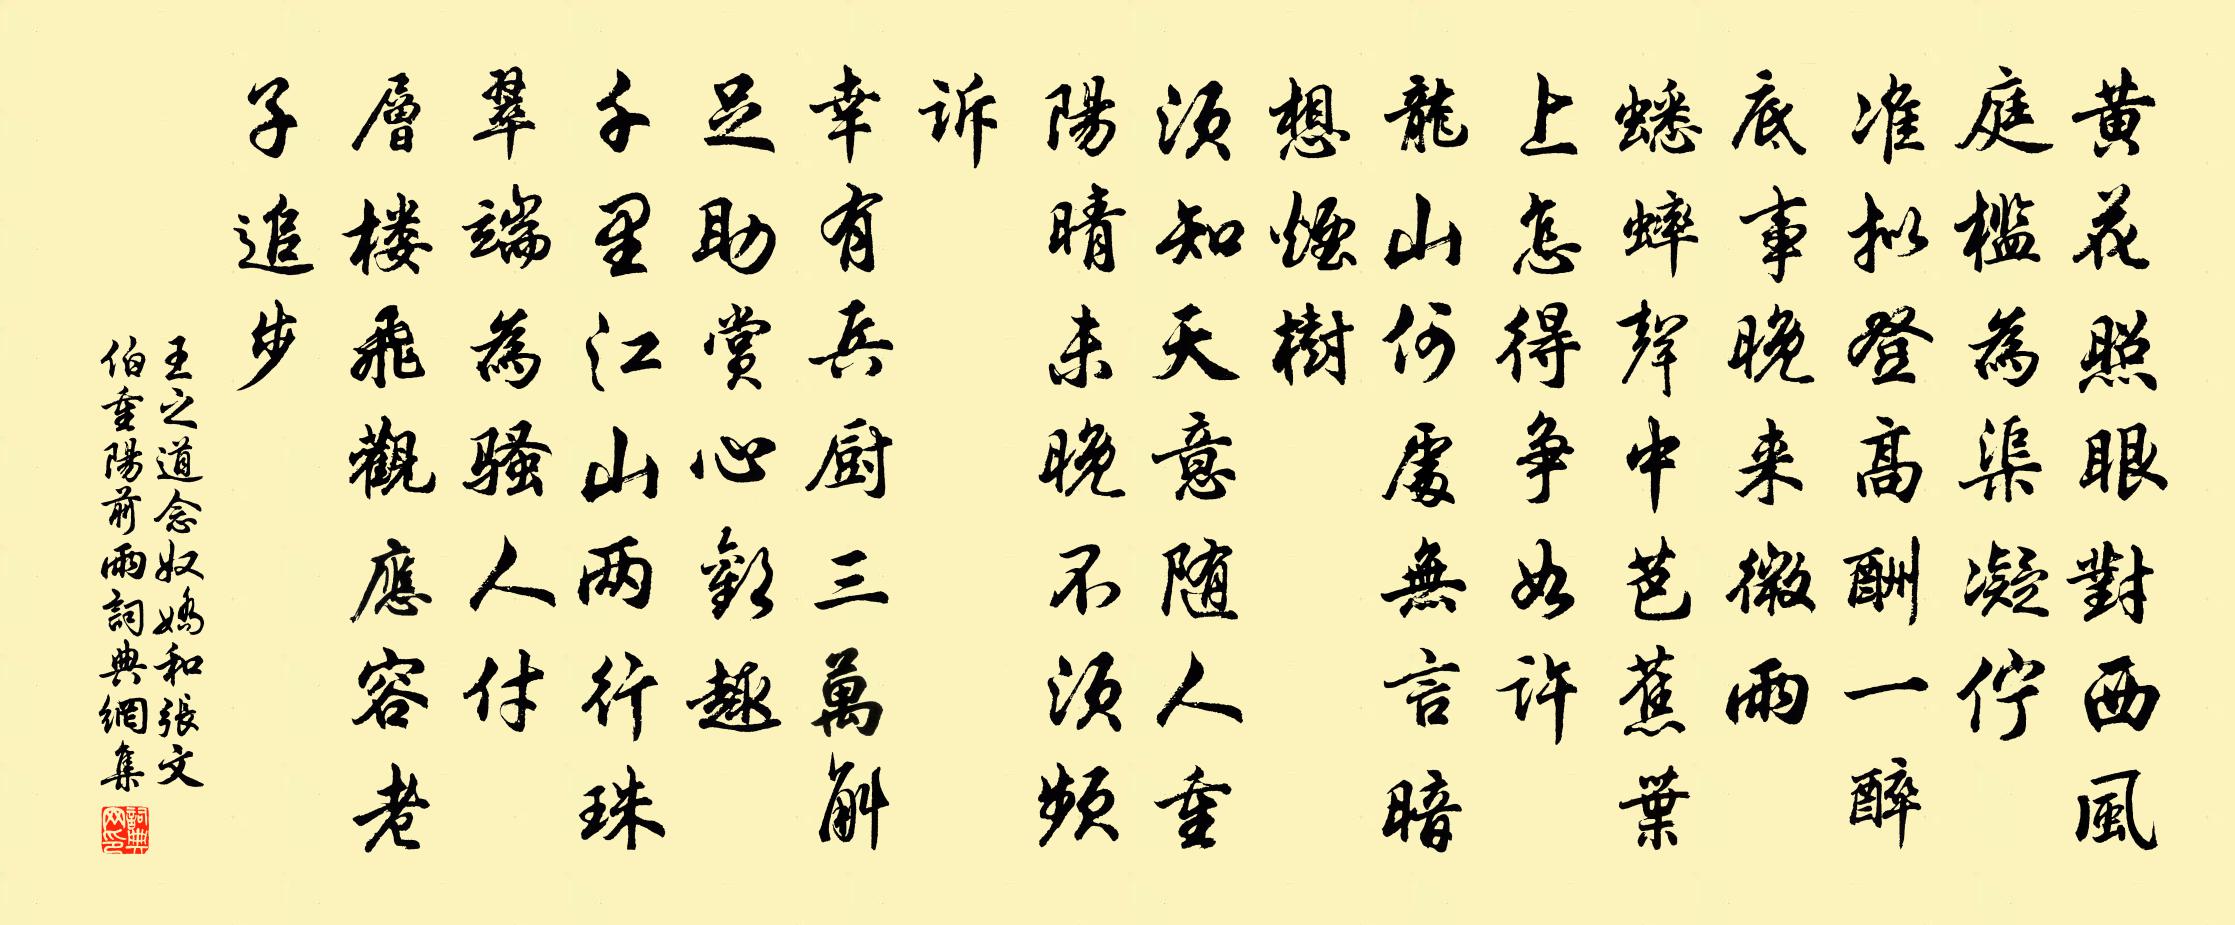 黄花照眼對西風
庭檻為渠凝佇
准拟登高酬一醉
底事晚来微雨
蟋蟀聲中芭蕉葉
上怎得争如许
龍山何處無言暗
想煙樹
須知天意随人重
陽晴未晚不須頻
诉
幸有兵厨三萬斛
足助賞心歡趣
千里江山两行珠
翠端為騷人付
層楼飛觀應容老
子追步
王之道念奴嬌和張文
伯重陽前雨詞典網集
詞典
网印